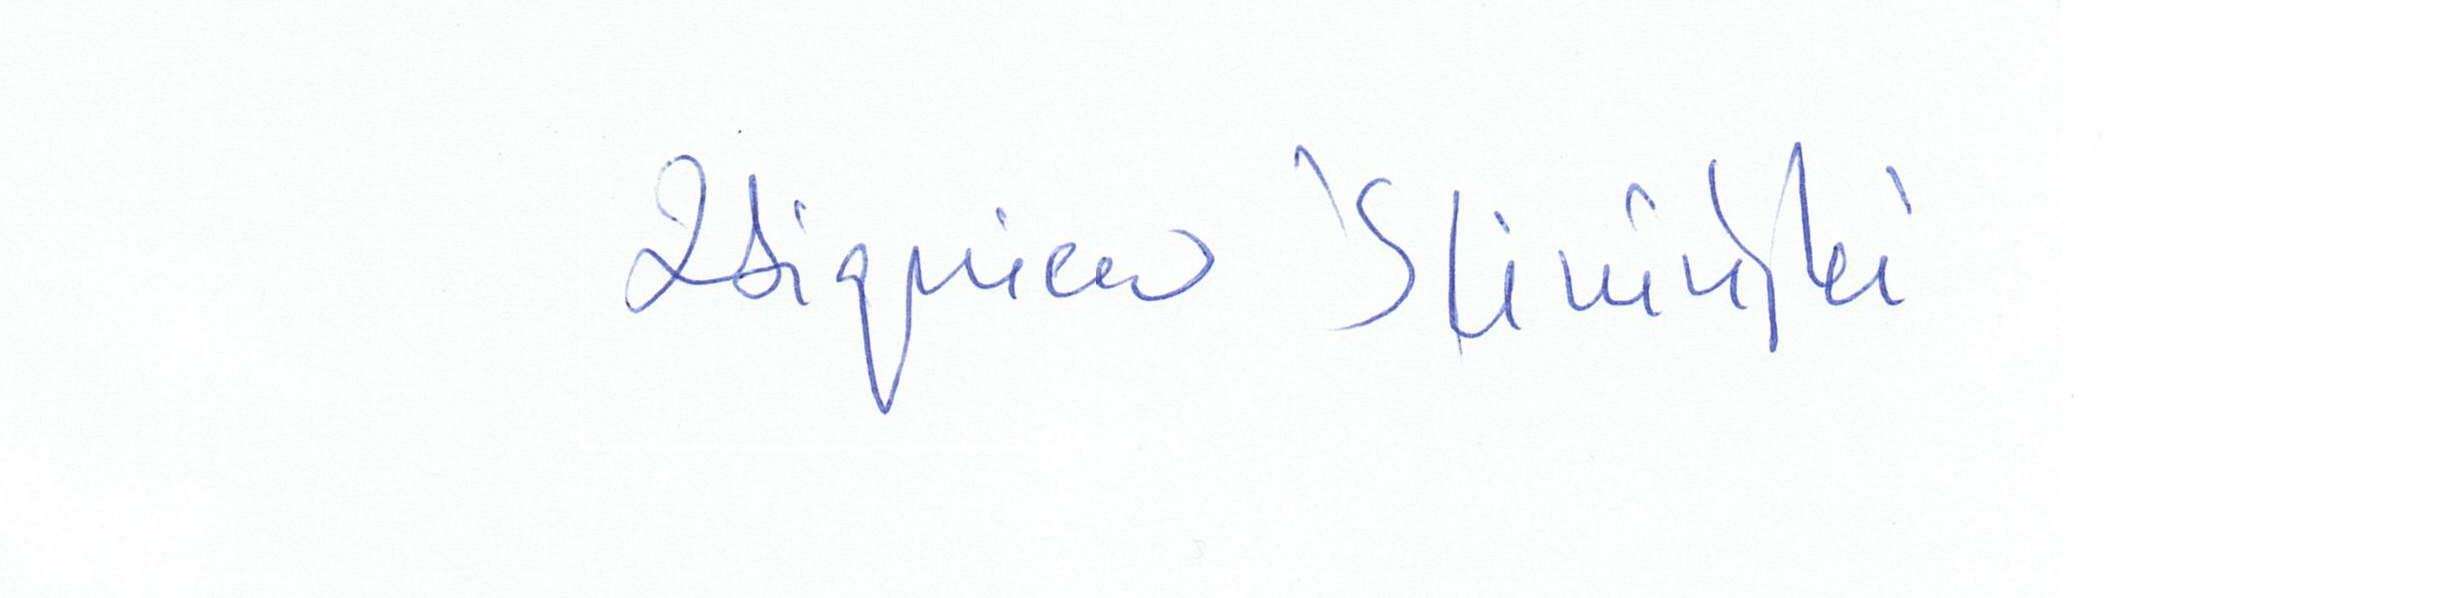 Zbigniew Śliwiński